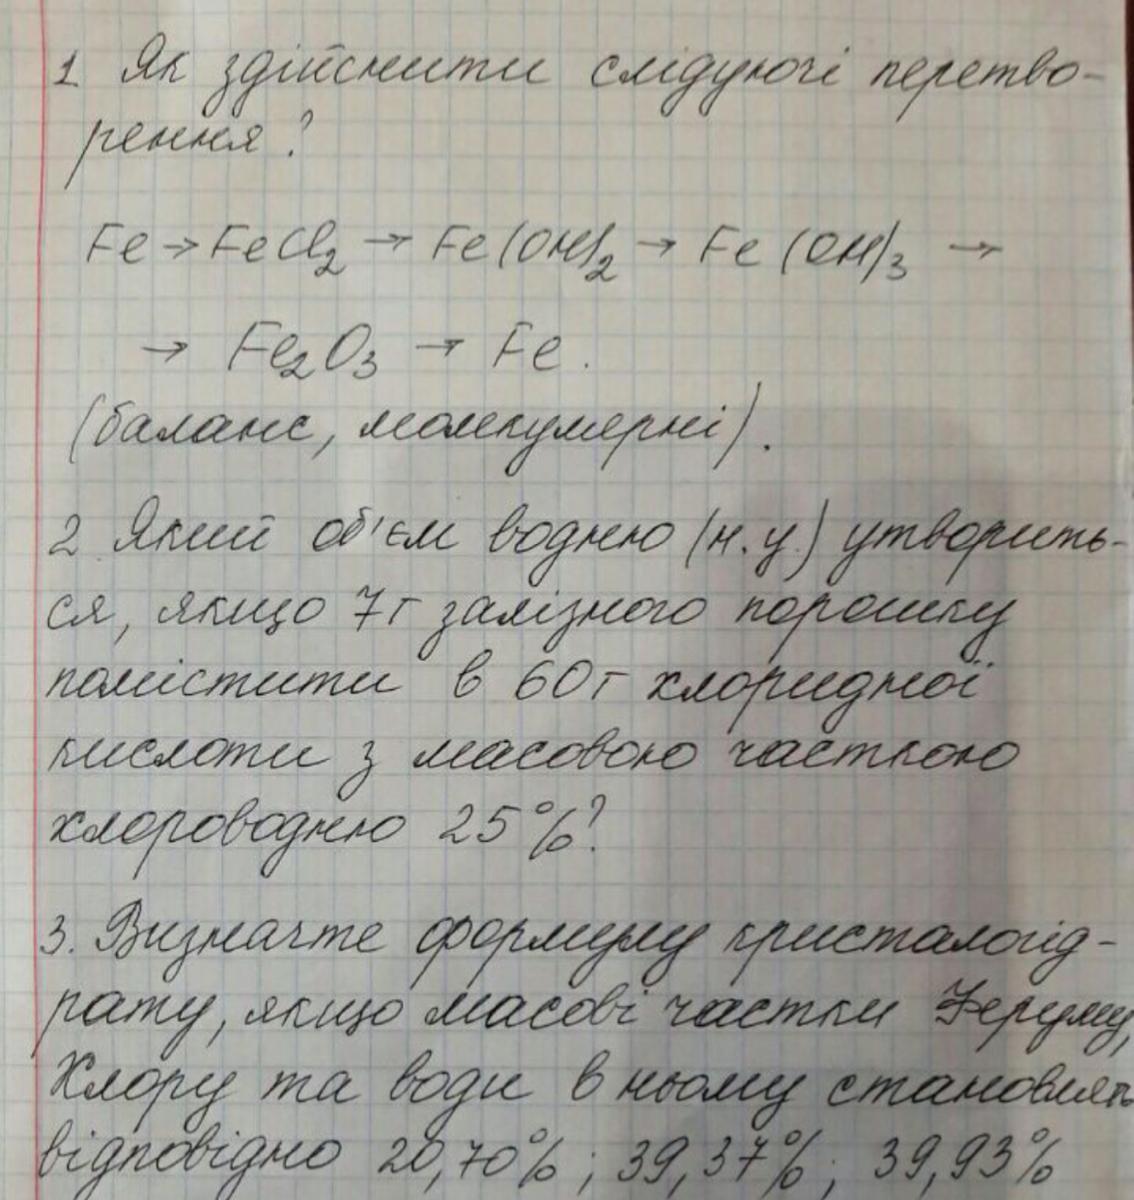 1 Як здійснити слідуючі перетво-
рення?
Fe → FeCl₂ → Fe(OH)₂ → Fe(OH)₃ →
→ Fe₂O₃ → Fe.
(баланс, молекулярні).
2 Який об'єм водню (н.у.) утворить-
ся, якщо 7г залізного порошку
помістити в 60г хлоридної
кислоти з масовою часткою
хлороводню 25%?
3. Визначте формулу кристалогід-
рату, якщо масові частки Феруму,
Хлору та води в ньому становлять
відповідно 20,70%; 39,37%; 39,93%